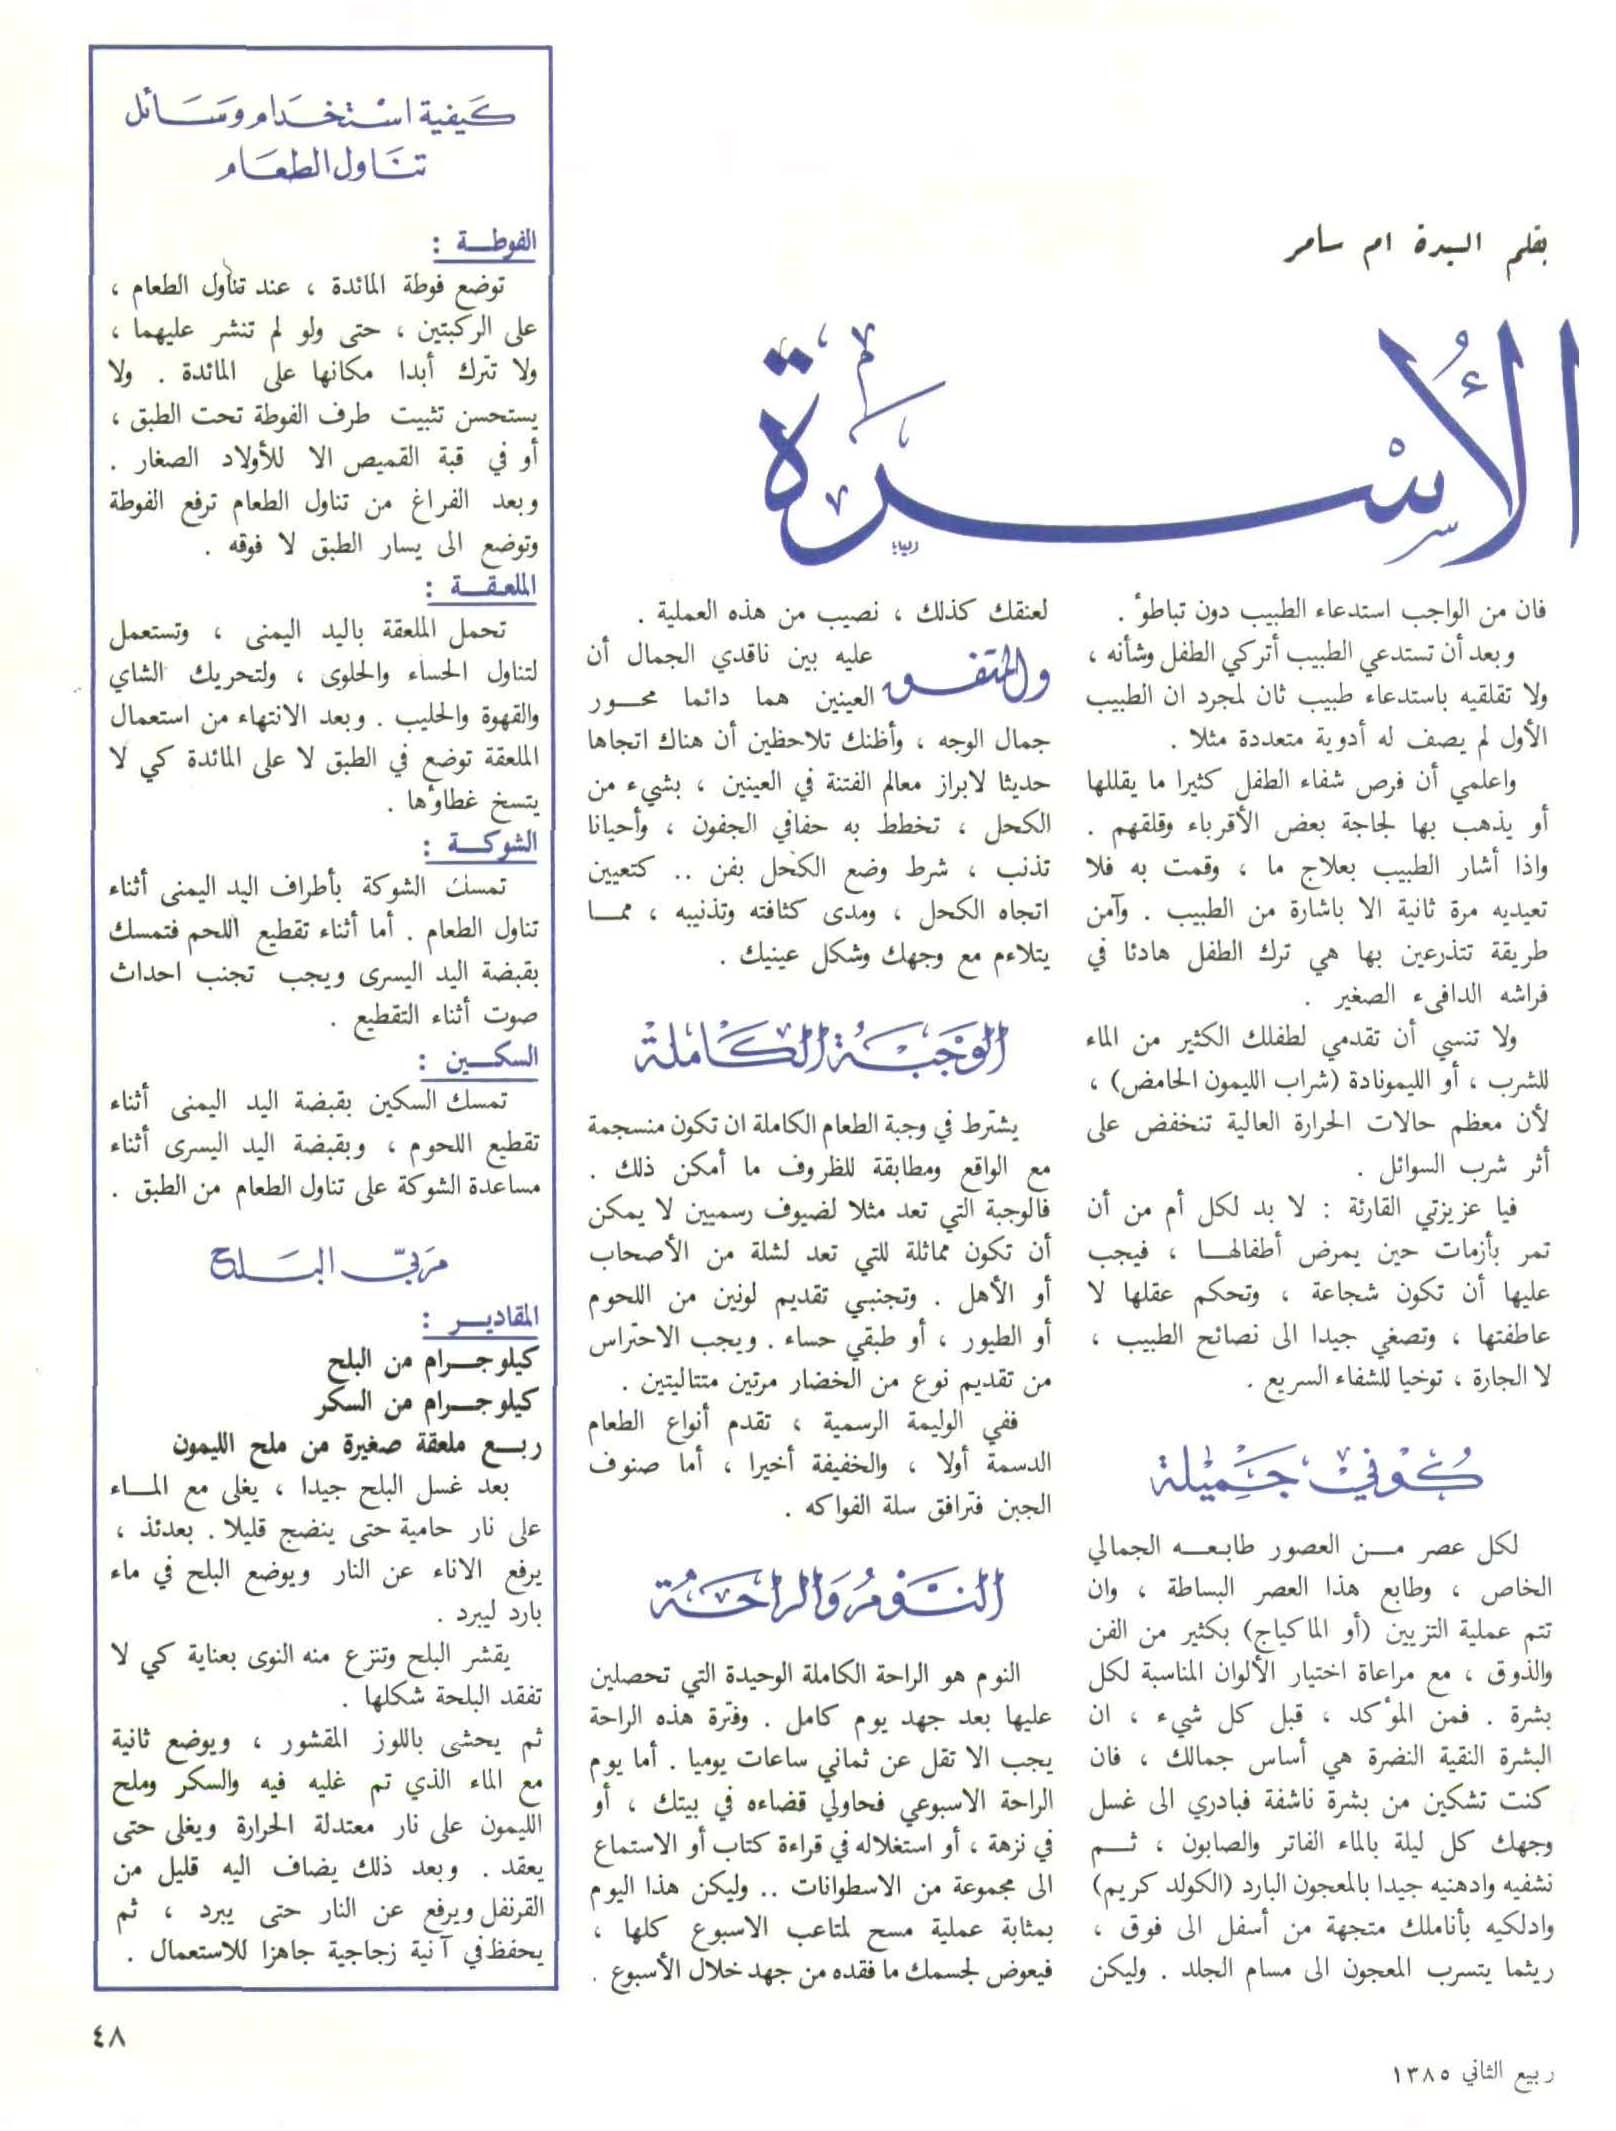 بقلم السيدة ام سامر
الأُسْرَة
فان من الواجب استدعاء الطبيب دون تباطؤ .
وبعد أن تستدعي الطبيب أتركي الطفل وشأنه ،
ولا تقلقيه باستدعاء طبيب ثان لمجرد ان الطبيب
الأول لم يصف له أدوية متعددة مثلا .
واعلمي أن فرص شفاء الطفل كثيرا ما يقللها
أو يذهب بها لجاجة بعض الأقرباء وقلقهم .
واذا أشار الطبيب بعلاج ما ، وقمت به فلا
تعيديه مرة ثانية الا باشارة من الطبيب . وآمن
طريقة تتذرعين بها هي ترك الطفل هادئا في
فراشه الدافىء الصغير .
ولا تنسي أن تقدمي لطفلك الكثير من الماء
للشرب ، أو الليمونادة (شراب الليمون الحامض) ،
لأن معظم حالات الحرارة العالية تنخفض على
أثر شرب السوائل .
فيا عزيزتي القارئة : لا بد لكل أم من أن
تمر بأزمات حين يمرض أطفالهـا ، فيجب
عليها أن تكون شجاعة ، وتحكم عقلها لا
عاطفتها ، وتصغي جيدا الى نصائح الطبيب ،
لا الجارة ، توخيا للشفاء السريع .
كُوني جَميلة
لكل عصر مـن العصور طابعـه الجمالي
الخاص ، وطابع هذا العصر البساطة ، وان
تتم عملية التزيين (أو الماكياج) بكثير من الفن
والذوق ، مع مراعاة اختيار الألوان المناسبة لكل
بشرة . فمن المؤكد ، قبل كل شيء ، ان
البشرة النقية النضرة هي أساس جمالك ، فان
كنت تشكين من بشرة ناشفة فبادري الى غسل
وجهك كل ليلة بالماء الفاتر والصابون ، ثـم
نشفيه وادهنيه جيدا بالمعجون البارد (الكولد كريم)
وادلكيه بأناملك متجهة من أسفل الى فوق ،
ريثما يتسرب المعجون الى مسام الجلد . وليكن
لعنقك كذلك ، نصيب من هذه العملية .
والمتفق عليه بين ناقدي الجمال أن
العينين هما دائما محـور
جمال الوجه ، وأظنك تلاحظين أن هناك اتجاها
حديثا لابراز معالم الفتنة في العينين ، بشيء من
الكحل ، تخطط به حفافي الجفون ، وأحيانا
تذنب ، شرط وضع الكحل بفن .. كتعيين
اتجاه الكحل ، ومدى كثافته وتذنيبه ، ممـا
يتلاءم مع وجهك وشكل عينيك .
الوَجبَة الكَاملة
يشترط في وجبة الطعام الكاملة ان تكون منسجمة
مع الواقع ومطابقة للظروف ما أمكن ذلك .
فالوجبة التي تعد مثلا لضيوف رسميين لا يمكن
أن تكون مماثلة للتي تعد لشلة من الأصحاب
أو الأهل . وتجنبي تقديم لونين من اللحوم
أو الطيور ، أو طبقي حساء . ويجب الاحتراس
من تقديم نوع من الخضار مرتين متتاليتين .
ففي الوليمة الرسمية ، تقدم أنواع الطعام
الدسمة أولا ، والخفيفة أخيرا ، أما صنوف
الجبن فترافق سلة الفواكه .
النَّومُ وَالراحَة
النوم هو الراحة الكاملة الوحيدة التي تحصلين
عليها بعد جهد يوم كامل . وفترة هذه الراحة
يجب الا تقل عن ثماني ساعات يوميا . أما يوم
الراحة الاسبوعي فحاولي قضاءه في بيتك ، أو
في نزهة ، أو استغلاله في قراءة كتاب أو الاستماع
الى مجموعة من الاسطوانات .. وليكن هذا اليوم
بمثابة عملية مسح لمتاعب الاسبوع كلها ،
فيعوض لجسمك ما فقده من جهد خلال الأسبوع .
كَيفية استخدَام وسَائل
تنَاول الطعَام
الفوطـة :
توضع فوطة المائدة ، عند تناول الطعام ،
على الركبتين ، حتى ولو لم تنشر عليهما ،
ولا تترك أبدا مكانها على المائدة . ولا
يستحسن تثبيت طرف الفوطة تحت الطبق ،
أو في قبة القميص الا للأولاد الصغار .
وبعد الفراغ من تناول الطعام ترفع الفوطة
وتوضع الى يسار الطبق لا فوقه .
الملعقـة :
تحمل الملعقة باليد اليمنى ، وتستعمل
لتناول الحساء والحلوى ، ولتحريك الشاي
والقهوة والحليب . وبعد الانتهاء من استعمال
الملعقة توضع في الطبق لا على المائدة كي لا
يتسخ غطاؤها .
الشوكـة :
تمسك الشوكة بأطراف اليد اليمنى أثناء
تناول الطعام . أما أثناء تقطيع اللحم فتمسك
بقبضة اليد اليسرى ويجب تجنب احداث
صوت أثناء التقطيع .
السكـين :
تمسك السكين بقبضة اليد اليمنى أثناء
تقطيع اللحوم ، وبقبضة اليد اليسرى أثناء
مساعدة الشوكة على تناول الطعام من الطبق .
مَربّى البَلح
المقاديـر :
كيلو جـرام من البلح
كيلو جـرام من السكر
ربـع ملعقة صغيرة من ملح الليمون
بعد غسل البلح جيدا ، يغلى مع المـاء
على نار حامية حتى ينضج قليلا . بعدئذ ،
يرفع الاناء عن النار ويوضع البلح في ماء
بارد ليبرد .
يقشر البلح وتنزع منه النوى بعناية كي لا
تفقد البلحة شكلها .
ثم يحشى باللوز المقشور ، ويوضع ثانية
مع الماء الذي تم غليه فيه والسكر وملح
الليمون على نار معتدلة الحرارة ويغلى حتى
يعقد . وبعد ذلك يضاف اليه قليل من
القرنفل ويرفع عن النار حتى يبرد ، ثم
يحفظ في آنية زجاجية جاهزا للاستعمال .
٤٨
ربيع الثاني ١٣٨٥